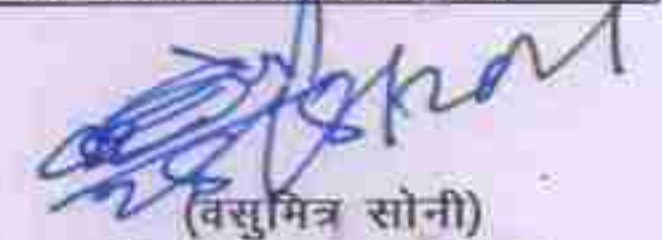 (वसुमित्र सोनी)